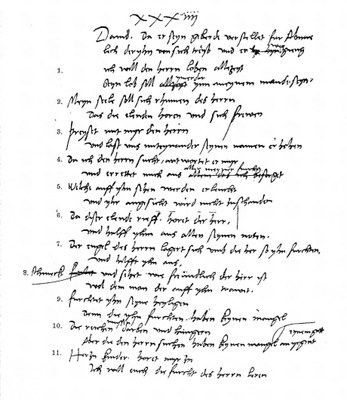 XXXiiij
Dauid. Da er seyn geberde verstellet fur Abime
lich der yhn von sich treyb und er
1. ich will den herrn loben allezeyt
Seyn lob soll ymer ynn meynem munde seyn.
2. Meyn seele soll sich rhumen des herrn
Das die elenden horen und sich frewen
3. Preyset mit myr den herrn
und last uns miteynander seynen namen erhohen
4. Da ich den herrn sucht, antwortet er myr
und errettet mich aus aller meyner furcht
5. Wilche auff yhn sehen werden erleucht
und yhr angesicht wird nicht zuschanden
6. Da diser elende rieff, horet der herr,
und halff yhm aus allen seynen noten.
7. Der engel des herrn lagert sich umb die her so yhn furchten,
und hilfft yhn aus.
8. Schmeckt und sehet wie freundlich der herr ist
wol dem man der auff yhn trawet.
9. Furchtet yhn seyne heyligen
denn die yhn furchten haben keynen mangel
10. Die reichen darben und hungern
Aber die den herrn suchen haben keynen mangel an yrgent eynem gutt
11. Her zu kinder horet myr zu
Ich will euch die furcht des herrn leren